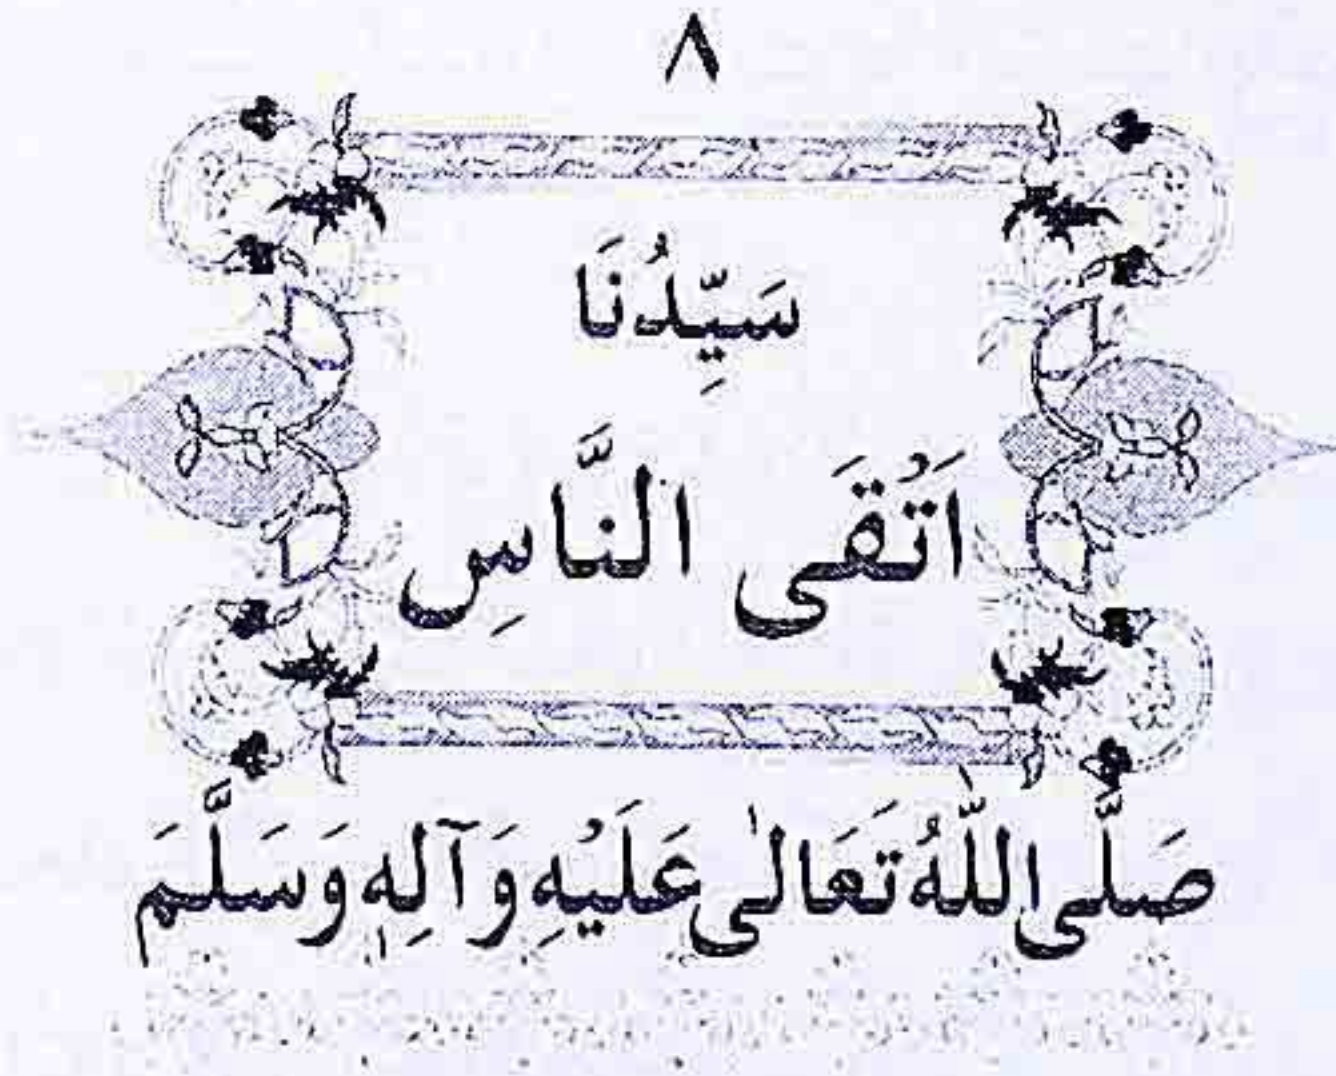 ٨
سَیِّدُنَا
اَتْقَی النَّاسِ
صَلَّی اللّٰهُ تَعَالٰی عَلَیْهِ وَآلِهٖ وَسَلَّمَ